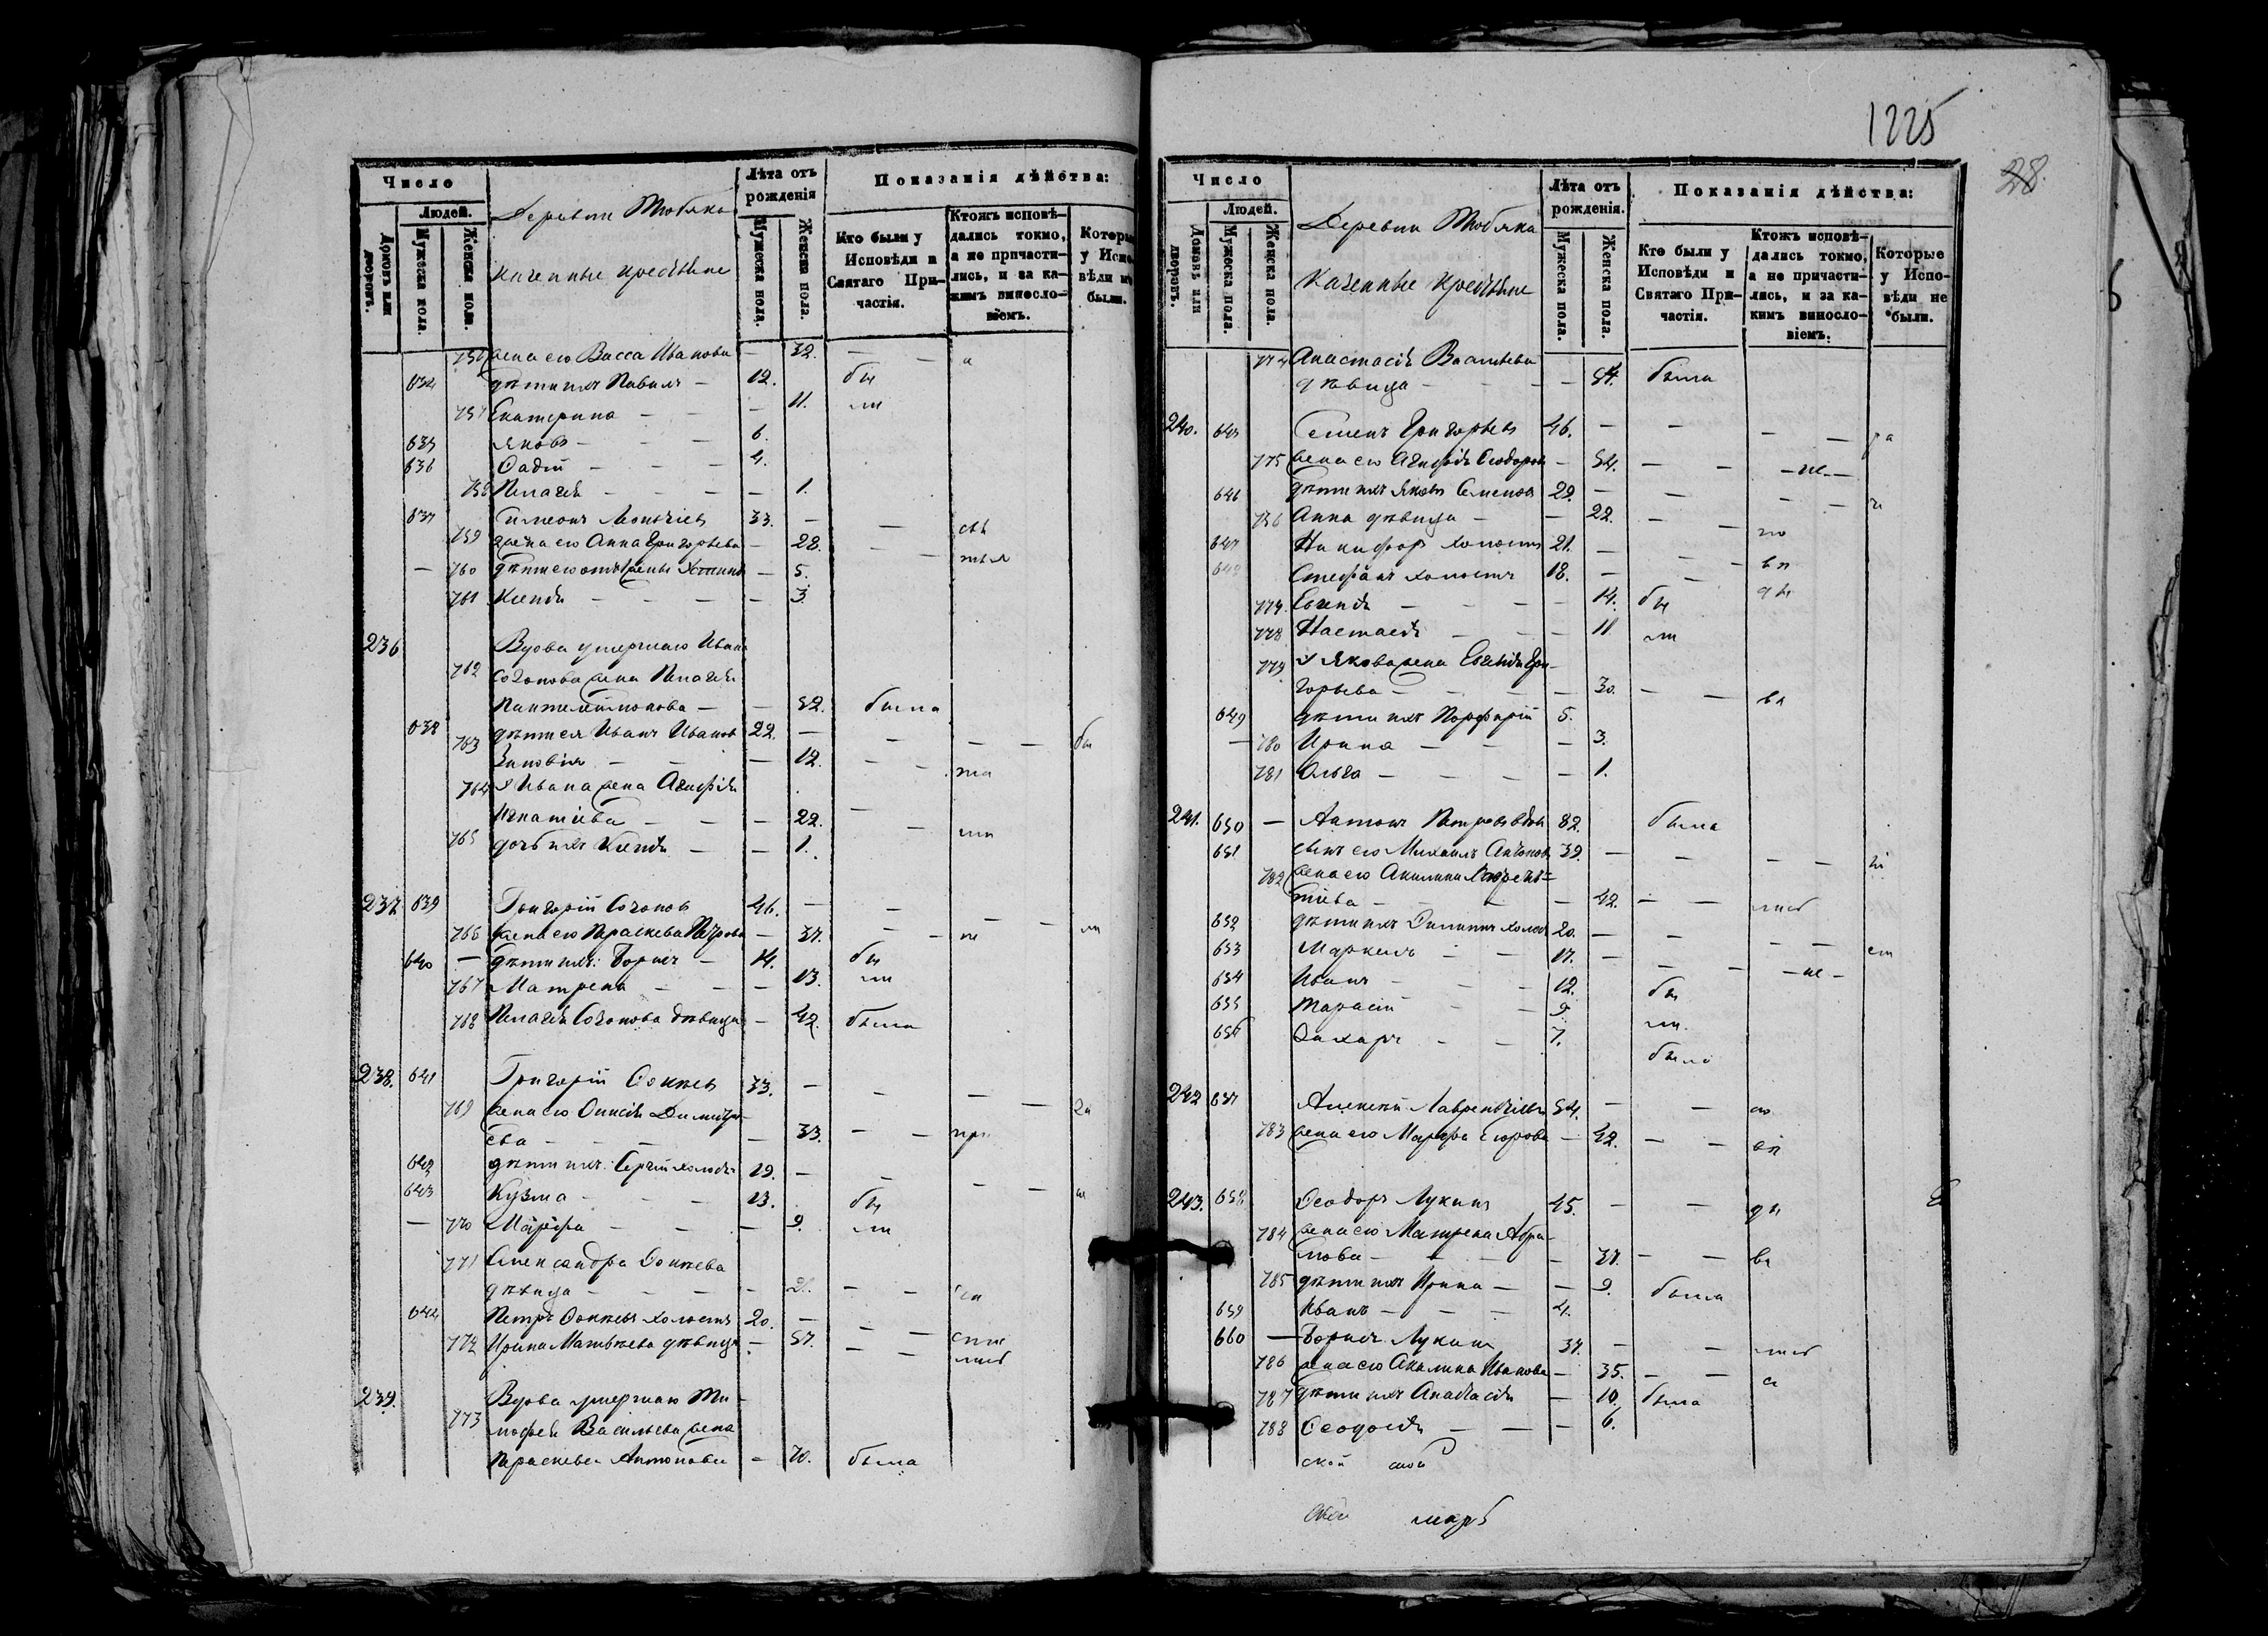 Число
Людей.
Домовъ или дворовъ.
Мужеска пола.
Женска пола.
Деревни Тюбяка
казенные крестьяне
Лѣта отъ рожденія
Мужеска пола.
Женска пола.
Показанія дѣйства:
Кто были у Исповѣди и Святаго Причастія.
Ктожъ исповѣдались токмо, а не причастились, и за какимъ винословіемъ.
Которые у Испо вѣди не были.
жена его Васса Иванова — 32. — —
634 дѣти ихъ Павелъ — 12. бы
757 Екатерина — — — 11. ли
635 Яковъ — — — 6.
636 — — — 4.
758 Пелагея — — — — 1.
637 Симеонъ Леонтьевъ 33. — —
759 жена его Анна Григорьева — 28. — —
— 760 дѣти его отъ 1 жены — 5.
761 Ксенія — — — — 3.
236 Вдова умершаго Ивана
762 Созонова жена Пелагея
Пантелеймонова — — 52. была
638 дѣти ея Иванъ Ивановъ 22. — — — — бы
763 Зиновія — — — 12. — —
764 У Ивана жена Агафія
Игнатіева — — — 22. — —
765 дочь ихъ Ксенія — — 1.
237. 639 Григорій Созоновъ 46. — — — — ли
766 жена его Параскева Петрова — 37. — — не
640 — дѣти ихъ: Борисъ — 14. бы
767 Матрена — — — 13. ли
768 Пелагея Созонова дѣвица — 42. была
238. 641 Григорій Фокѣевъ 33. — — — —
769 жена его Онисія Димитрі-
ева — — — — 33. — — при
642 дѣти ихъ: Сергій холостъ 19. — — — —
643 Кузма — — — 13. бы
— 770 Марѳа — — — 9. ли
771 Александра Фокѣева
дѣвица — — — — — —
644 Петръ Фокѣевъ холостъ 20. — — —
772 Ирина Матвѣева дѣвица — 57. — —
239. Вдова умершаго Ти-
773 мофея Васильева жена
Параскева Антонова — 70. была
1225
28.
Число
Людей.
Домовъ или дворовъ.
Мужеска пола.
Женска пола.
Деревни Тюбяка
Казенные крестьяне
Лѣта отъ рожденія.
Мужеска пола.
Женска пола.
Показанія дѣйства:
Кто были у Исповѣди и Святаго Причастія.
Ктожъ исповѣдались токмо, а не причастились, и за какимъ винословіемъ.
Которые у Исповѣди не были.
774 Анастасія Васильева
дѣвица — — — — 54. была
240. 645 Семенъ Григорьевъ 46. — — — —
775 жена его Агафія Ѳеодорова — 54. — — — не —
646 дѣти ихъ Яковъ Семеновъ 29. — — — —
776 Анна дѣвица — — 22. — — по
647 Никифоръ холостъ 21. — — —
648 Стефанъ холостъ 18. — —
777. Евгенія — — — — 14. бы
778 Настасія — — — 11. ли
779 У Якова жена Евгенія Гри-
горьева — — — — 30. — —
649 дѣти ихъ Порфирій 5.
— 780 Ирина — — — 3.
781 Ольга — — — — 1.
241. 650 — Антонъ Петровъ вдовъ 82. была
651 сынъ его Михаилъ Антоновъ 39. — — — —
782 жена его Акилина Лаврен-
тіева — — — — 42. — —
652 дѣти ихъ Филиппъ холостъ 20. — — — —
653 Маркелъ — — 17. — — — — не —
654 Иванъ — — — 12. бы
655 Тарасій — — 9. ли.
656 Захаръ — — 7. была
242 657 Алексѣй Лаврентіевъ 54. — —
783 жена его Марѳа Егорова — 42. — —
243. 658 Ѳеодоръ Лукинъ 45. — —
784 жена его Матрена Абра-
мова — — — — 37. — —
785 дѣти ихъ Ирина — — 9. была
659 Иванъ — — — 4.
660 — Борисъ Лукинъ 37. — —
786 жена его Акилина Иванова — 35. — —
787 дѣти ихъ Анастасія — 10. была
788 Ѳеодосія — — — 6.